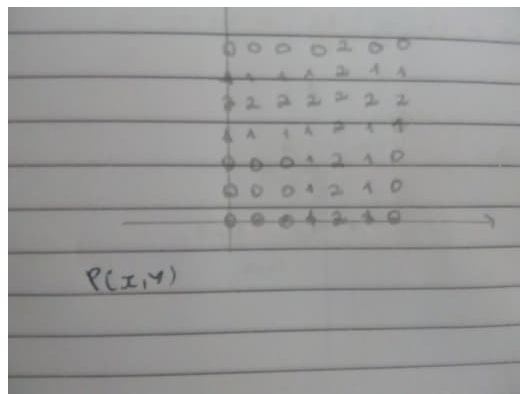 0 0 0 0 2 0 0
1 1 1 1 2 1 1
2 2 2 2 2 2 2
1 1 1 1 2 1 1
0 0 0 1 2 1 0
0 0 0 1 2 1 0
0 0 0 1 2 1 0
P(x,y)